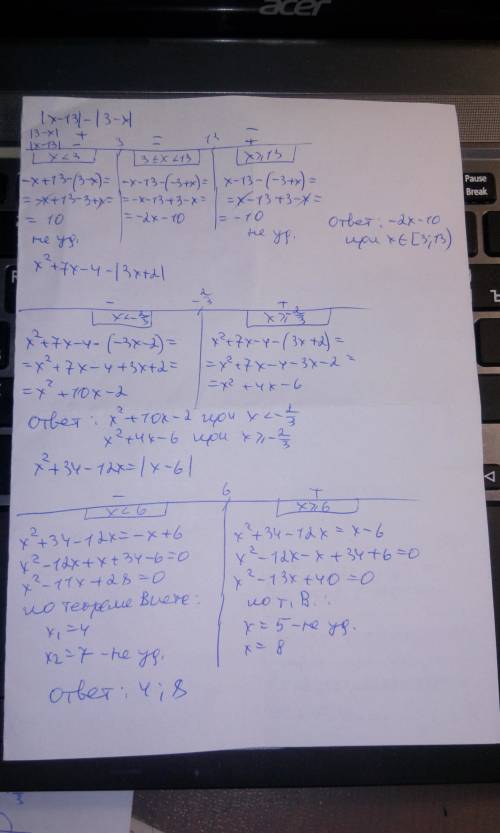 acer
Pause
Break
|x-13|-|3-x|
|3-x| + 3 = 13 =
|x-13| - +
x<3 3≤x<13 x≥13
-x+13-(3-x)= -x-13-(-3+x)= x-13-(-3+x)=
=-x+13-3+x= =-x-13+3-x= =x-13+3-x=
= 10 =-2x-10 =-10
не уд. не уд.
Ответ: -2x-10
при x∈[3;13)
x²+7x-4-|3x+2|
- -2/3 +
x<-2/3 x≥-2/3
x²+7x-4-(-3x-2)= x²+7x-4-(3x+2)=
=x²+7x-4+3x+2= =x²+7x-4-3x-2=
=x²+10x-2 =x²+4x-6
Ответ: x²+10x-2 при x<-2/3
x²+4x-6 при x≥-2/3
x²+34-12x=|x-6|
- 6 +
x<6 x≥6
x²+34-12x=-x+6 x²+34-12x=x-6
x²-12x+x+34-6=0 x²-12x-x+34+6=0
x²-11x+28=0 x²-13x+40=0
по теореме Виета: по т. В.:
x₁=4 x=5-не уд.
x₂=7-не уд. x=8
Ответ: 4;8